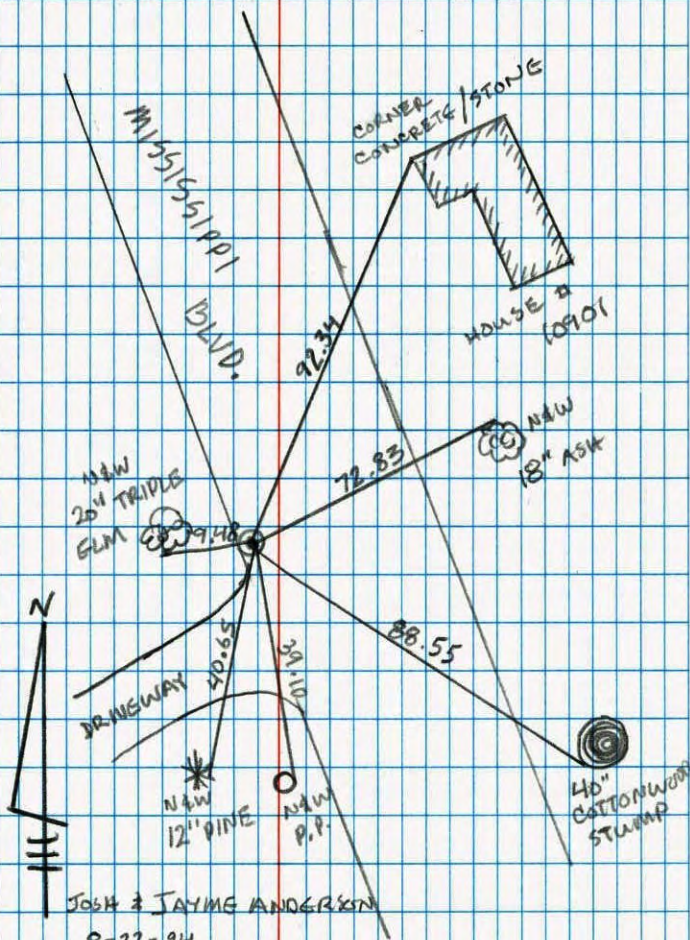 MISSISSIPPI
BLVD.
CORNER
CONCRETE/STONE
HOUSE #
10901
92.34
N&W
18" ASH
72.83
N&W
20" TRIPLE
ELM
9.48
N
40.65
39.10
88.55
DRIVEWAY
N&W
12" PINE
N&W
P.P.
40"
COTTONWOOD
STUMP
JOSH & JAYME ANDERSON
8-22-94